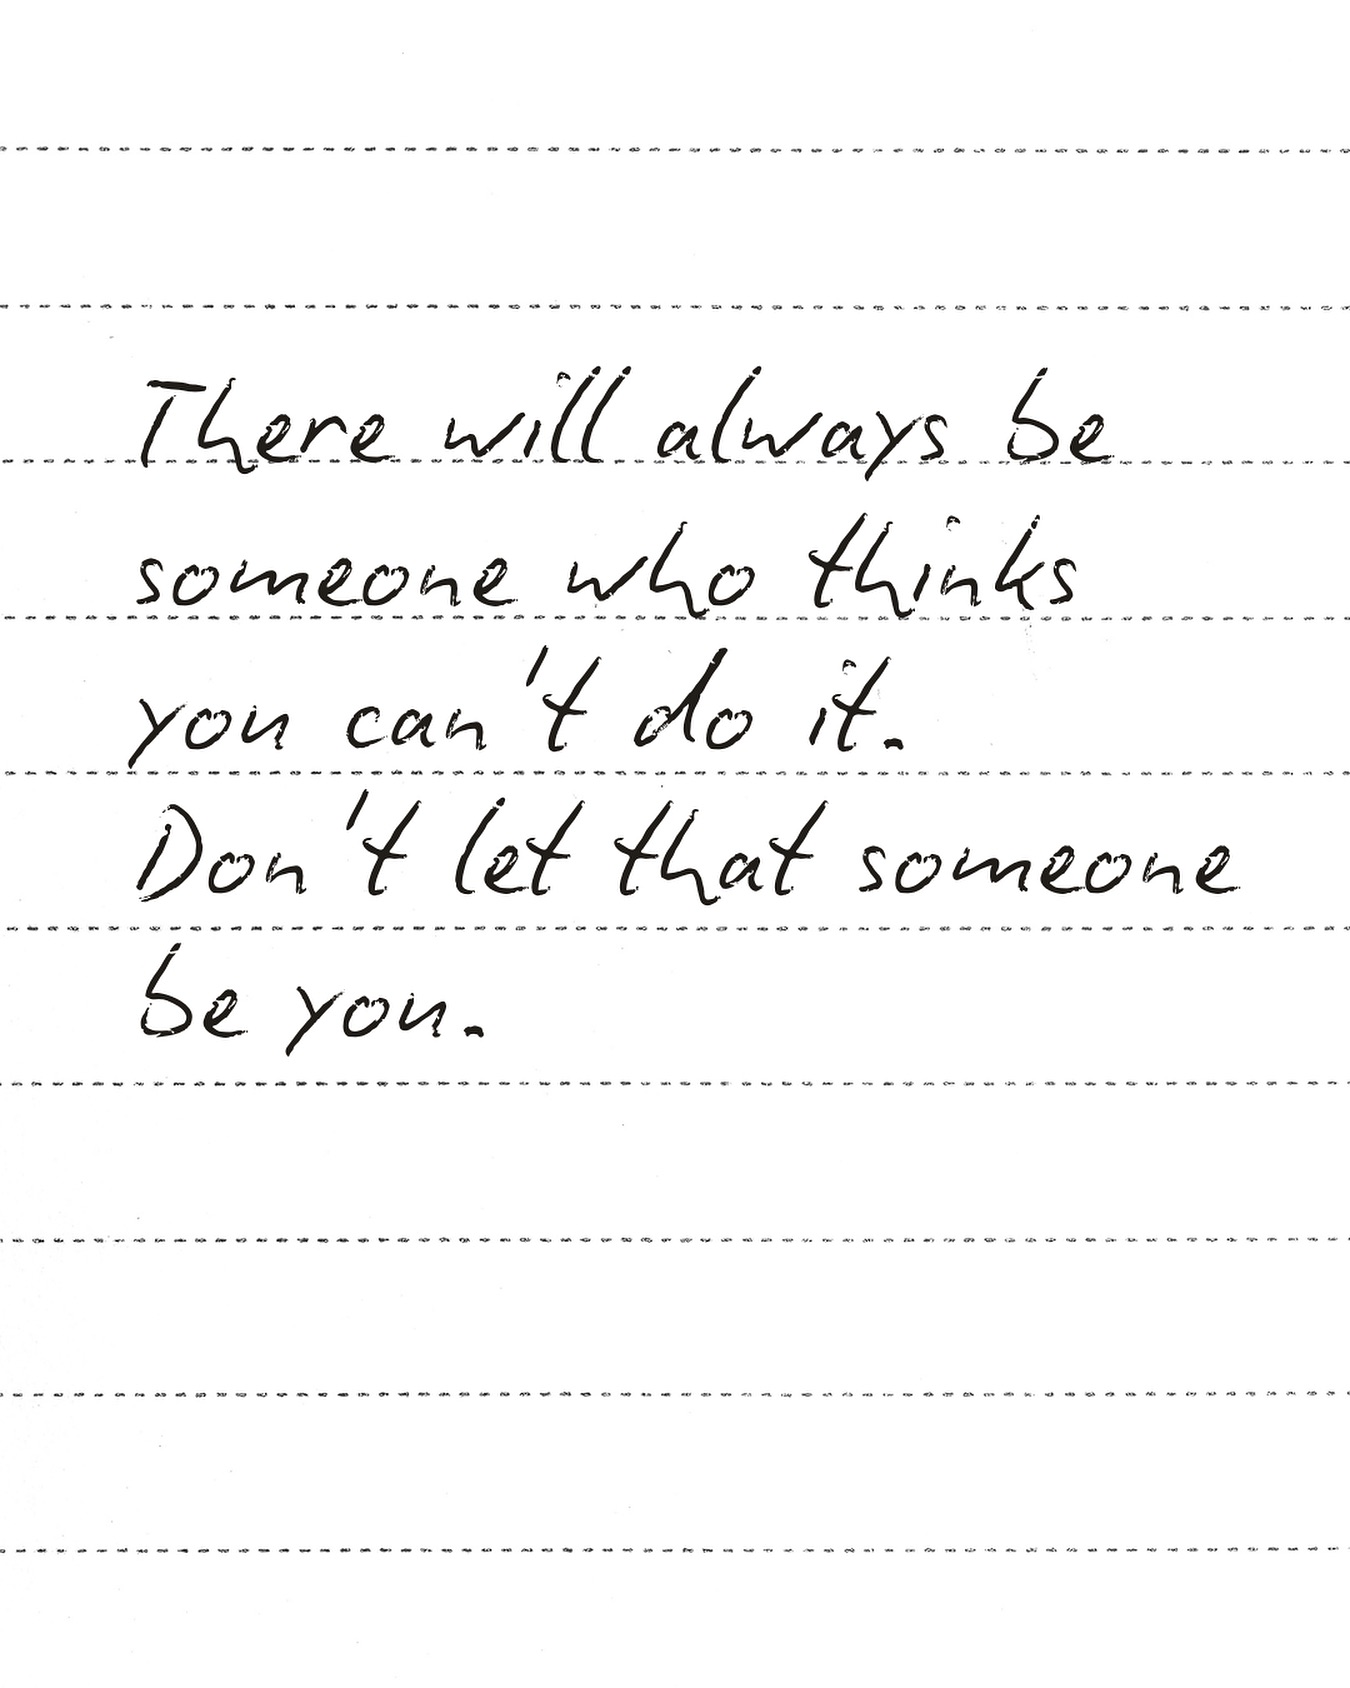 There will always be
someone who thinks
you can't do it.
Don't let that someone
be you.